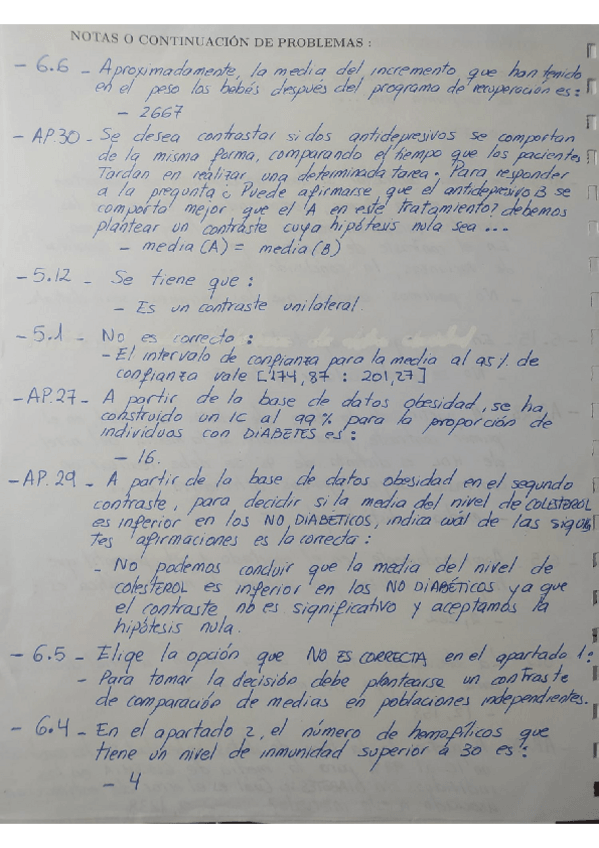 NOTAS O CONTINUACIÓN DE PROBLEMAS :
- 6.6 - Aproximadamente, la media del incremento que han tenido
en el peso los bebés después del programa de recuperación es:
- 2667
- AP.30 - Se desea contrastar si dos antidepresivos se comportan
de la misma forma, comparando el tiempo que los pacientes
Tardan en realizar una determinada tarea. Para responder
a la pregunta ¿Puede afirmarse, que el antidepresivo B se
comporta mejor que el A en este tratamiento? debemos
plantear un contraste cuya hipótesis nula sea ...
- media (A) = media (B)
- 5.12 - Se tiene que :
- Es un contraste unilateral.
- 5.1 - No es correcta :
- El intervalo de confianza para la media al 95 % de
confianza vale [174,87 : 201,27]
- AP.27 - A partir de la base de datos obesidad, se ha
construido un IC al 99 % para la proporción de
individuos con DIABETES es :
- 16.
- AP.29 - A partir de la base de datos obesidad en el segundo
contraste, para decidir si la media del nivel de COLESTEROL
es inferior en los NO DIABÉTICOS, indica cuál de las siguien
tes afirmaciones es la correcta :
- No podemos concluir que la media del nivel de
COLESTEROL es inferior en los NO DIABÉTICOS ya que
el contraste no es significativo y aceptamos la
hipótesis nula.
- 6.5 - Elige la opción que NO ES CORRECTA en el apartado 1:
- Para tomar la decisión debe plantearse un contraste
de comparación de medias en poblaciones independientes.
- 6.4 - En el apartado 2, el número de hemofílicos que
tiene un nivel de inmunidad superior a 30 es :
- 4